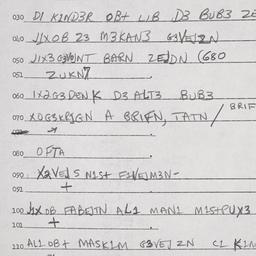 030 DI KIND3R OB+ LIB D3 BUB3 ZE
040 JIXOB Z3 M3KAN3 G3VEJZN
050 JIX3 G3WINT BARN ZEJDN (680
051 ZUKN7
060 IX2G3DENK D3 ALT3 BUB3
070 XOG3KRJGN A BRIFN, TATN / BRIF
080 OFTA
090 X2VEJS NIST FIVEJM3N-
091 +
100 JIX OB FABEJTN AL1 MAN1 MIS+PUX3
101 +
110 AL1 OB+ MASKIM G3VEJZN CI KIN